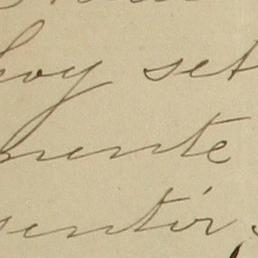 hoy set
mente
sentir